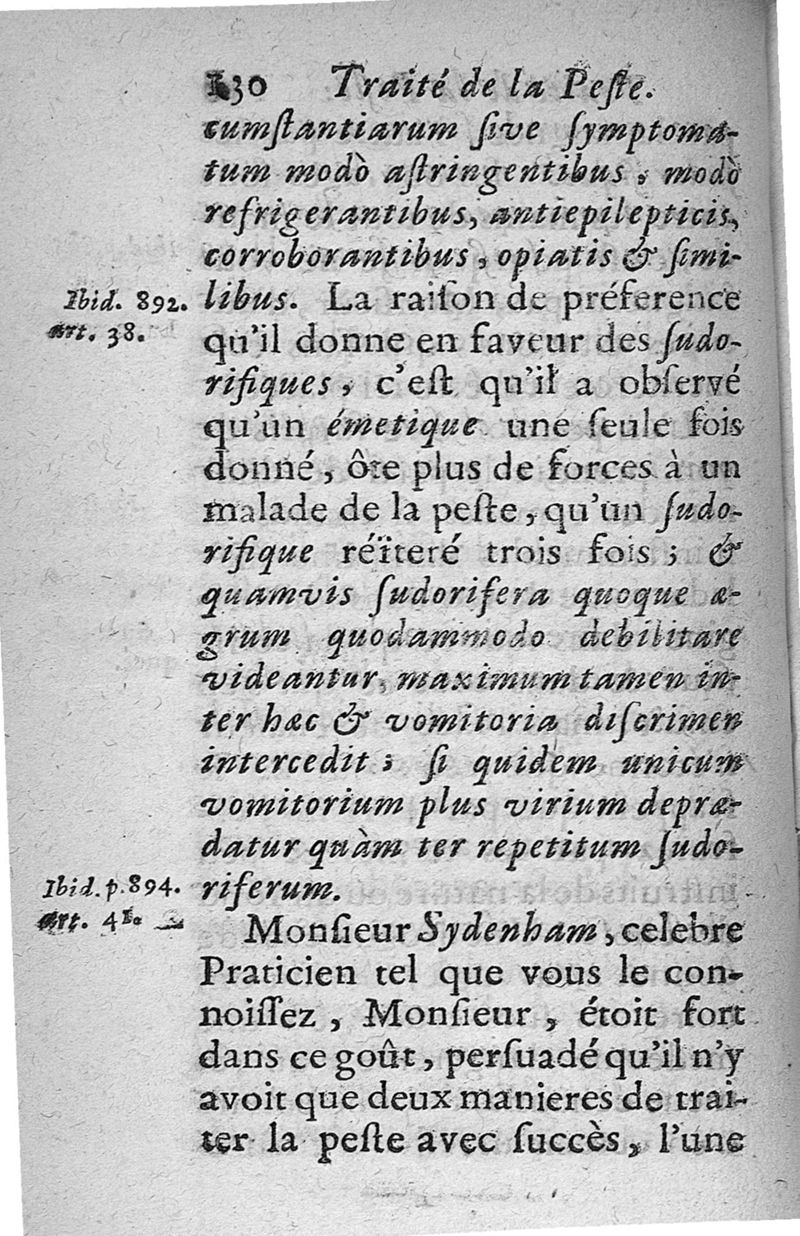 130 Traité de la Peſte.
cumſtantiarum ſive ſymptoma-
tum modò aſtringentibus, modò
refrigerantibus, antiepilepticis,
corroborantibus, opiatis & ſimi-
Ibid. 892. libus. La raiſon de préference
Art. 38. qu'il donne en faveur des ſudo-
rifiques, c'eſt qu'il a obſervé
qu'un émetique une ſeule fois
donné, ôte plus de forces à un
malade de la peſte, qu'un ſudo-
rifique réïteré trois fois; &
quamvis ſudorifera quoque æ-
grum quodammodo debilitare
videantur, maximum tamen in-
ter hæc & vomitoria diſcrimen
intercedit; ſi quidem unicum
vomitorium plus virium depræ-
datur quàm ter repetitum ſudo-
Ibid. p. 894. riferum.
Art. 41. Monſieur Sydenham, celebre
Praticien tel que vous le con-
noiſſez, Monſieur, étoit fort
dans ce goût, perſuadé qu'il n'y
avoit que deux manieres de trai-
ter la peſte avec ſuccès, l'une